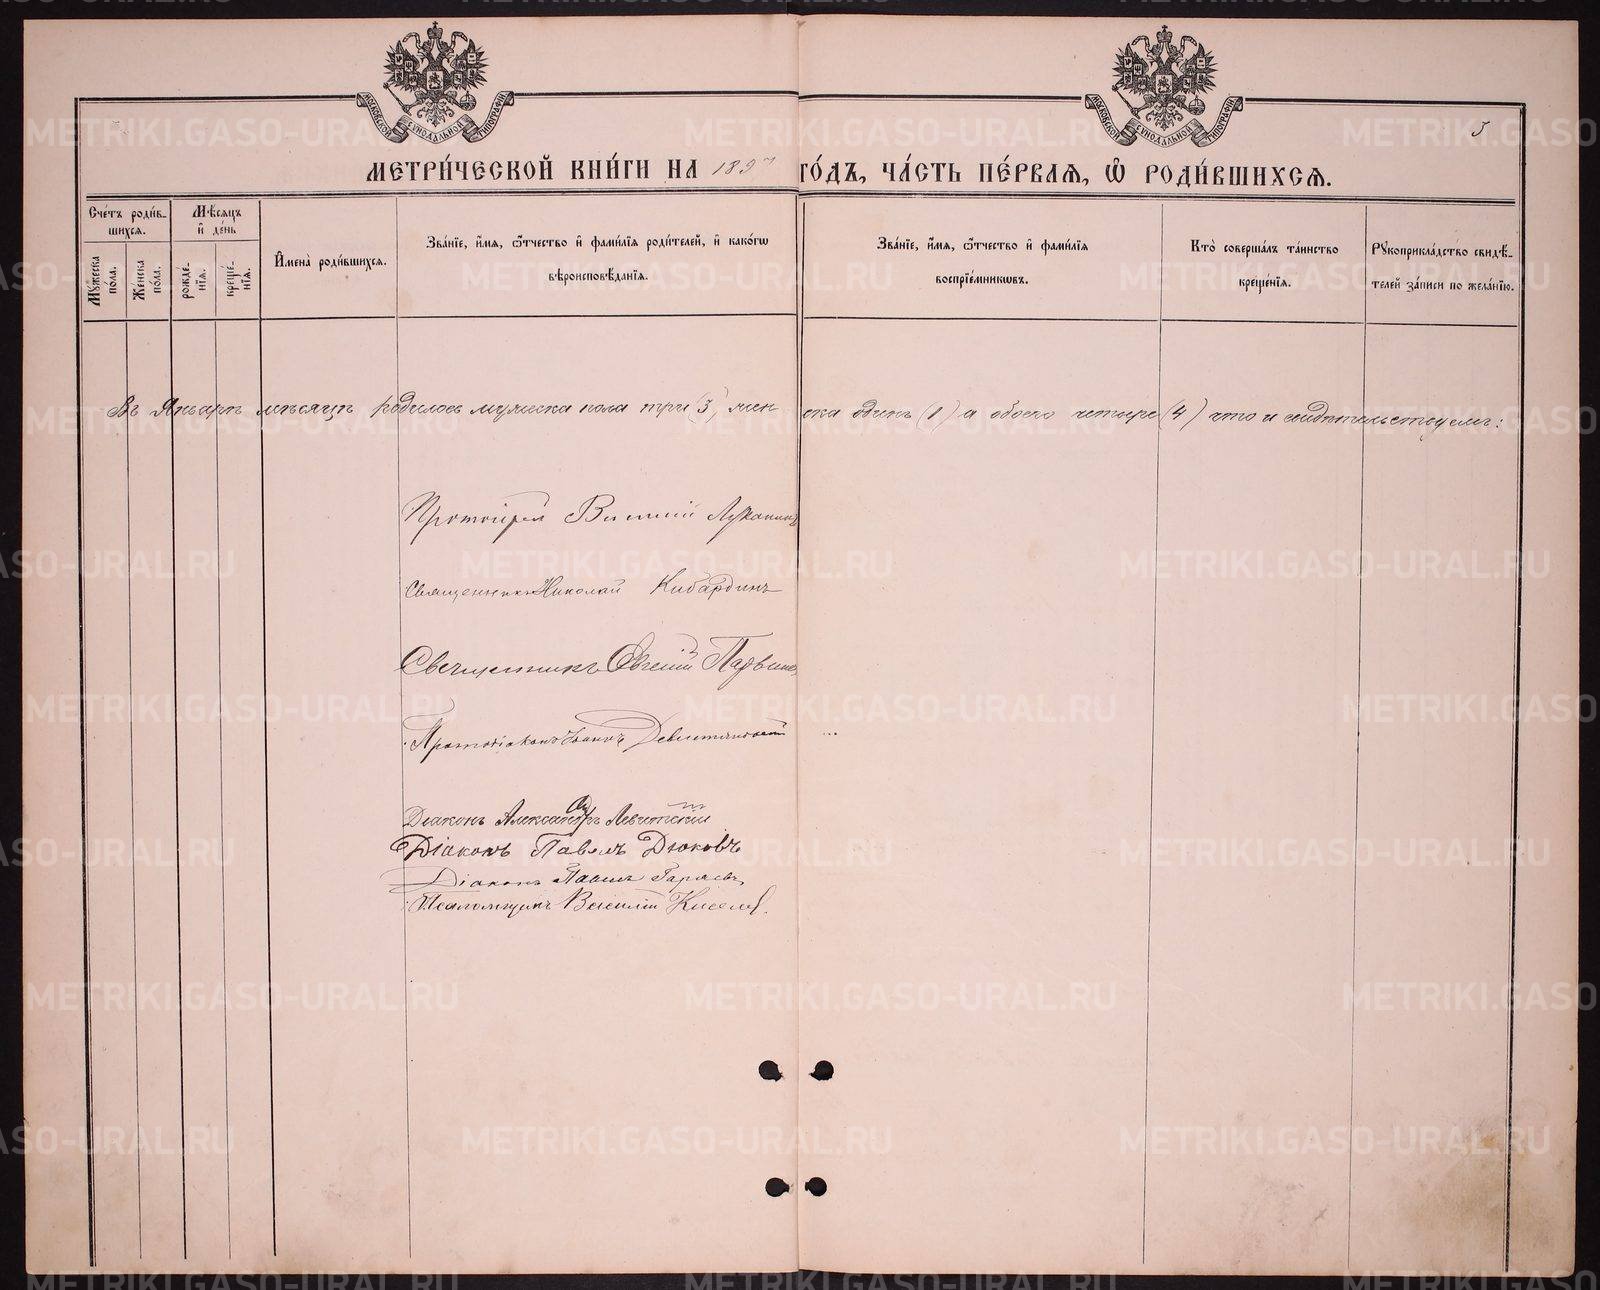 МОСКОВСКОЙ СѴНОДАЛЬНОЙ ТИПОГРАФІИ
МОСКОВСКОЙ СѴНОДАЛЬНОЙ ТИПОГРАФІИ
МЕТРИ́ЧЕСКОЙ КНИ́ГИ НА 1897 ГО́ДЪ, ЧА́СТЬ ПЕ́РВАЯ, Ѡ҆ РОДИ́ВШИХСЯ.
Сче́тъ роди́в-
шихся.
Мꙋ́жеска по́ла.
Же́нска по́ла.
Мѣ́сяцъ и҆ де́нь
рожде́-нїя.
креще́-нїя.
И҆мена̀ роди́вшихся.
Зва́нїе, и҆́мя, ѻ҆́тчество и҆ фами́лїя роди́телей, и҆ како́гѡ
вѣроисповѣ́данїя.
Зва́нїе, и҆́мя, ѻ҆́тчество и҆ фами́лїя
воспрїе́мникѡвъ.
Кто̀ соверша́лъ та́инство
креще́нїя.
Рꙋкоприкла́дство свидѣ́-
телей за́писи по жела́нїю.
Въ Январѣ мѣсяцѣ родилось мужеска пола три (3) жен ска одинъ (1) а обоего четыре (4) что и свидѣтельствуемъ:
Протоіерей Василій Луканинъ
Священникъ Николай Кибардинъ
Священникъ Евгеній
Протодіаконъ Іоаннъ
Діаконъ Александръ Левитскій
Діаконъ Павелъ Дюковъ
Діаконъ Павелъ Гаряевъ
Псаломщикъ Василій Киселев.
METRIKI.GASO-URAL.RU